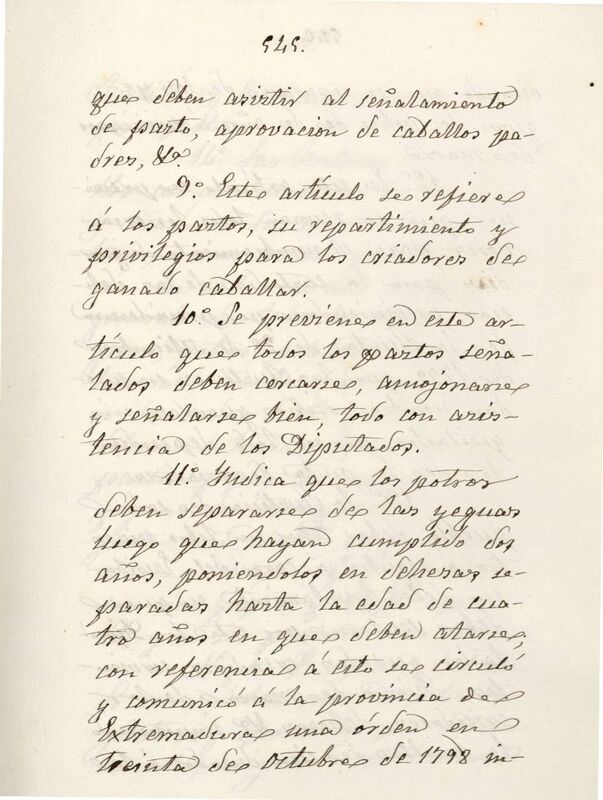 545.
que deben asistir al señalamiento
de pasto, aprovacion de caballos pa-
dres, &ª.
9º. Este artículo se refiere
á los pastos, su repartimiento y
privilegios para los criadores de
ganado caballar.
10º. Se previene en este ar-
tículo que todos los pastos seña-
lados deben cercarse, amojonarse
y señalarse bien, todo con asis-
tencia de los Diputados.
11º. Indica que los potros
deben separarse de las yeguas
luego que hayan cumplido dos
años, poniendolos en dehesas se-
paradas hasta la edad de cua-
tro años en que deben atarse,
con referencia á esto se circuló
y comunicó á la provincia de
Extremadura una órden en
treinta de octubre de 1798 in-